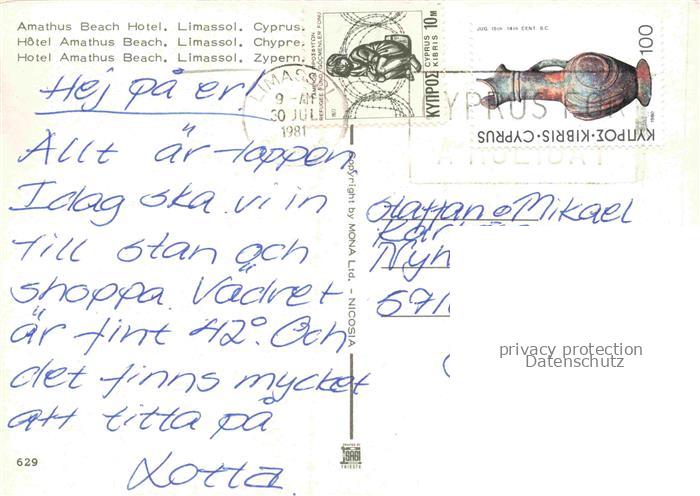 Amathus Beach Hotel. Limassol. Cyprus.
Hôtel Amathus Beach. Limassol. Chypre.
Hotel Amathus Beach. Limassol. Zypern.
Hej på er!
Allt är toppen
Idag ska vi in
till stan och
shoppa. Vädret
är fint 42°. Och
det finns mycket
att titta på
Lotta.
629
Copyright by MONA Ltd. - NICOSIA
LIMASSOL
9 - AM
30 JUL
1981
ΚΥΠΡΟΣ CYPRUS KIBRIS 10M
JUG 15th 14th CENT. B.C.
100
ΚΥΠΡΟΣ·KIBRIS·CYPRUS
1980
CYPRUS FOR
A HOLIDAY
Staffan o Mikael
Kar
Nyh
571
privacy protection
Datenschutz
SAGI
TRIESTE